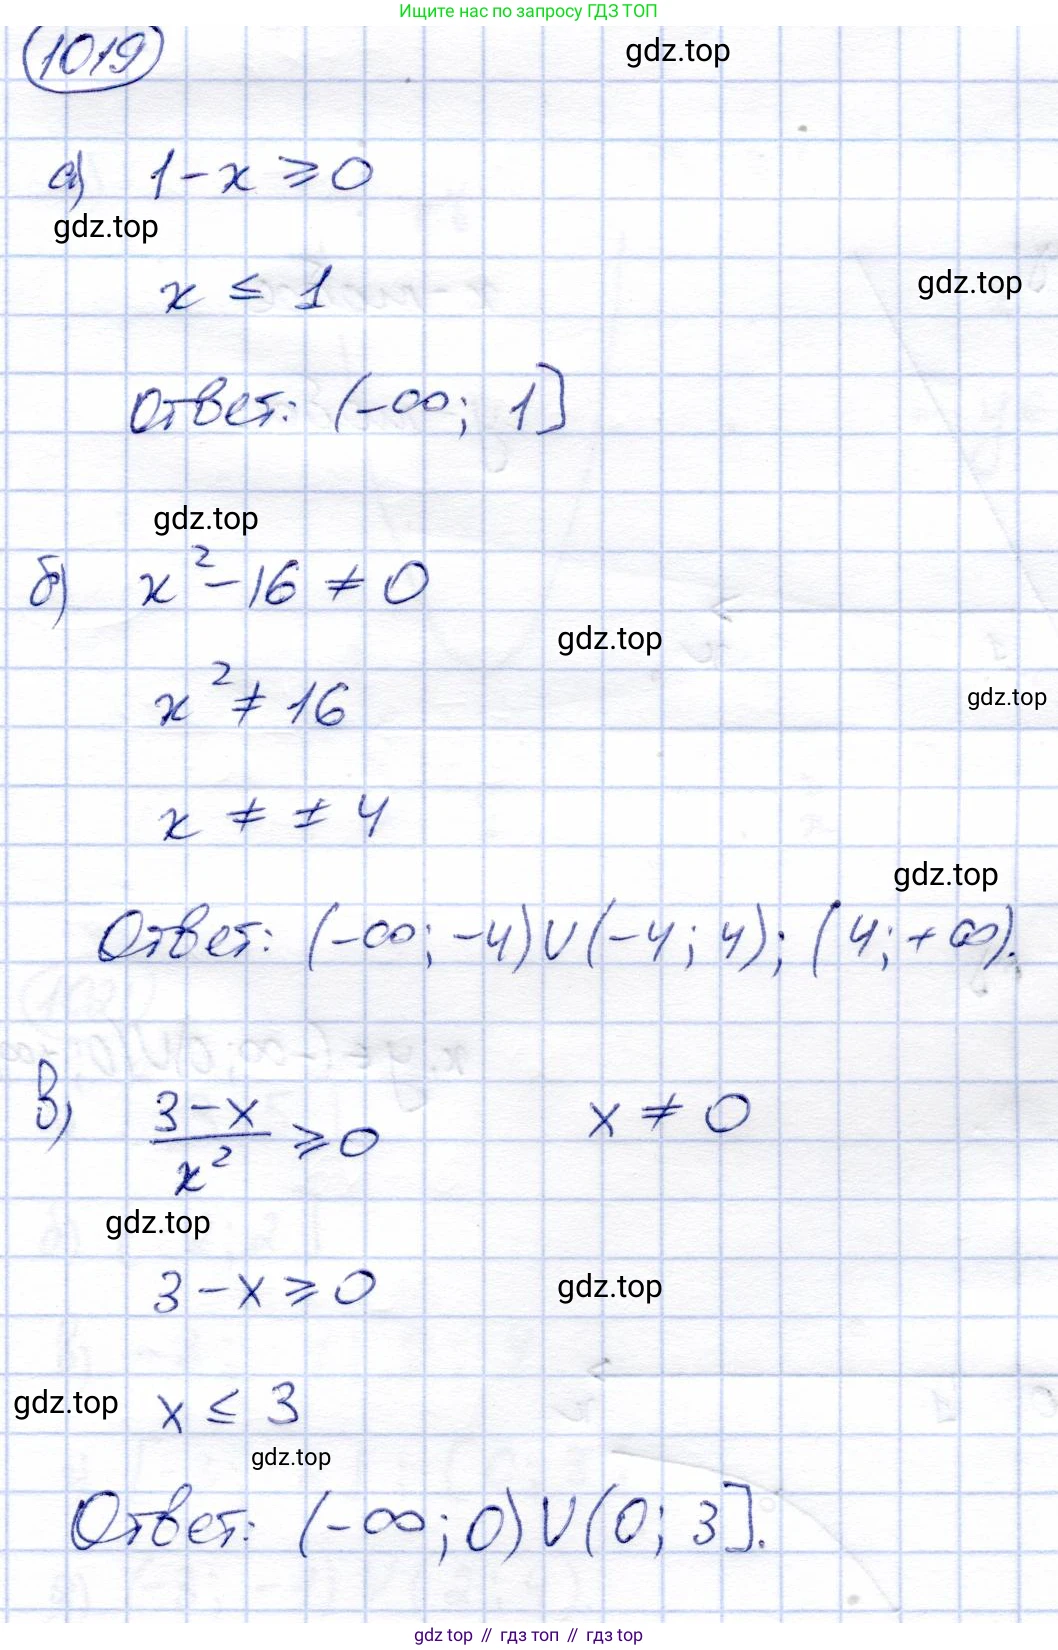 Ищите нас по запросу ГДЗ ТОП
1019
gdz.top
а) 1 - x ≥ 0
gdz.top
gdz.top
x ≤ 1
Ответ: (-∞; 1]
gdz.top
б) x² - 16 ≠ 0
gdz.top
x² ≠ 16
gdz.top
x ≠ ± 4
gdz.top
Ответ: (-∞; -4) ∪ (-4; 4); (4; +∞).
в) (3 - x)/x² ≥ 0 x ≠ 0
gdz.top
3 - x ≥ 0
gdz.top
gdz.top
x ≤ 3
gdz.top
Ответ: (-∞; 0) ∪ (0; 3].
gdz top // гдз топ // гдз top